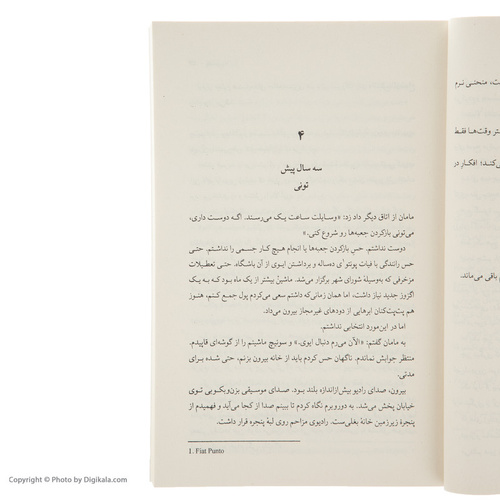 ۴
سه سال پیش
تونی
مامان از اتاق دیگر داد زد: «وسایلت ساعت یک می‌رسند. اگه دوست داری،
می‌تونی بازکردن جعبه‌ها رو شروع کنی.»
دوست نداشتم. حس بازکردن جعبه‌ها یا انجام هیچ کار جسمی را نداشتم. حتی
حس رانندگی با فیات پونتو¹ی ده‌ساله و برداشتن ایوی از آن باشگاه. حتی تعطیلات
مزخرفی که به‌وسیلهٔ شورای شهر برگزار می‌شد. ماشین بیشتر از یک ماه بود که به یک
اگزوز جدید نیاز داشت، اما همان زمانی‌که داشتم سعی می‌کردم پول جمع کنم، هنوز
هم پت‌پت‌کنان ابرهایی از دودهای غیرمجاز بیرون می‌داد.
اما در این‌مورد انتخابی نداشتم.
به مامان گفتم: «الآن می‌رم دنبال ایوی.» و سوئیچ ماشینم را از گوشه‌ای قاپیدم.
منتظر جوابش نماندم. ناگهان حس کردم باید از خانه بیرون بزنم، حتی شده برای
مدتی.
بیرون، صدای رادیو بیش‌ازاندازه بلند بود. صدای موسیقی بزن‌وبکوبی توی
خیابان پخش می‌شد. به دوروبرم نگاه کردم تا ببینم صدا از کجا می‌آید و فهمیدم از
پنجرهٔ زیرزمین خانهٔ بغلی‌ست. رادیوی مزاحم روی لبهٔ پنجره قرار داشت.
1. Fiat Punto
ت، منحنی نرم
تر وقت‌ها فقط
ی‌کند؛ افکار در
باقی می‌ماند.
Copyright © Photo by Digikala.com